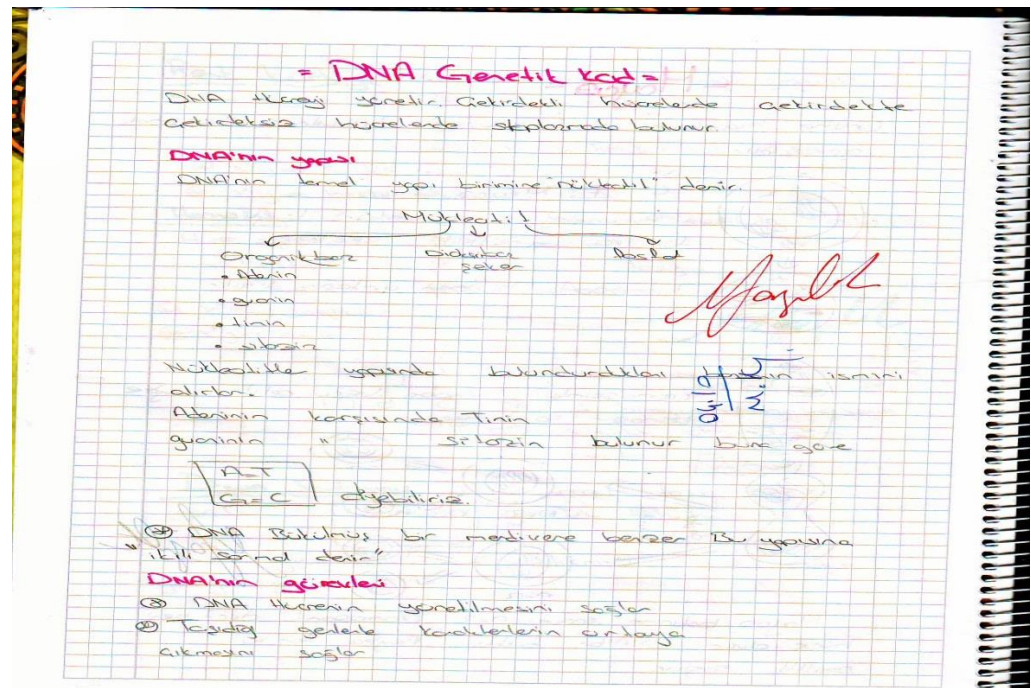 = DNA Genetik Kod =
DNA Hücreyi yönetir. Çekirdekli hücrelerde çekirdekte
çekirdeksiz hücrelerde sitoplazmada bulunur.
DNA'nın yapısı
DNA'nın temel yapı birimine "nükleotil" denir.
Nükleotil
Organik baz Dioksiriboz Fosfat
şeker
• Adenin
• guanin
• timin
• sitozin
Nükleotitle yapısında bulundurdukları ismini
alırlar.
Adeninin karşısında Timin
guaninin " sitozin bulunur buna göre
A=T
G=C diyebiliriz.
DNA Bükülmüş bir merdivene benzer Bu yapısına
"ikili sarmal denir"
DNA'nın görevleri
DNA Hücrenin yönetilmesini sağlar
Taşıdığı genlerle karakterlerin ortaya
çıkmasını sağlar